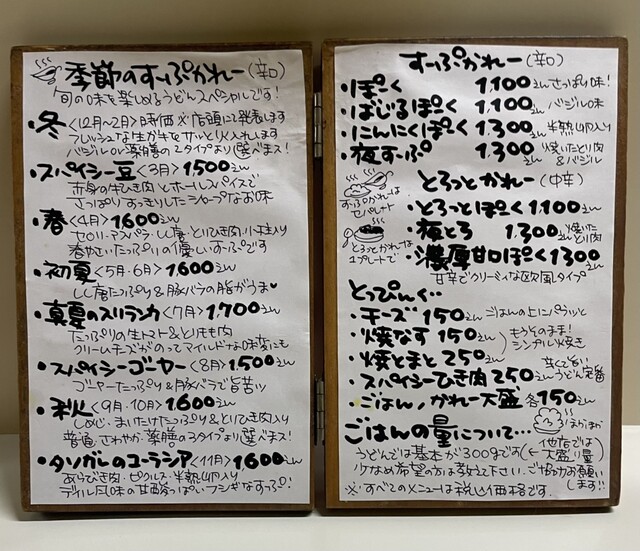 季節のすーぷかれー(辛口)
旬の味を楽しめるうどんスペシャルです!
・冬〈12月〜2月〉時価 ※店頭にて発表ます
フレッシュな生がキをサッとり入れします
バジル or 薬膳の2タイプより選べます!
・スパイシー豆〈3月〉1,500えん
赤身の牛ひき肉とホールスパイスで
さっぱりすっきりしたシャープなお味
・春〈4月〉1,600えん
セロリ・アスパラ・しし唐・とりひき肉・小柱入り
春やさいたっぷりの優しいすーぷです
・初夏〈5月・6月〉1,600えん
しし唐たっぷり&豚バラの脂がうま♥
・真夏のスリランカ〈7月〉1,700えん
たっぷりの生トマト&とりもも肉
クリームチーズがのってマイルドな味変にも
・スパイシーゴーヤー〈8月〉1,500えん
ゴーヤーたっぷり&豚バラで旨苦い
・秋〈9月・10月〉1,600えん
しめじ・まいたけたっぷり&とりひき肉入り
普通、さわやか、薬膳の3タイプより選べます!
・タソガレのユーラシア〈11月〉1,600えん
あらびき肉・ピクルス・半熟卵入り
ディル風味の甘酸っぱいフシギなすーぷ!
すーぷかれー(辛口)
・ぽーく 1,100えん さっぱり味!
・ばじるぽーく 1,100えん バジル味
・にんにくぽーく 1,300えん 半熟卵入り
・夜すーぷ 1,300えん 焼いたとり肉&バジル
すーぷかれーは
セパレート
とろっとかれーは
1プレートで
とろっとかれー(中辛)
・とろっとぽーく 1,100えん
・夜とろ 1,300えん 焼いたとり肉
・濃厚甘口ぽーく 1,300えん
甘辛でクリーミィな欧風タイプ
とっぴんぐ…
・チーズ 150えん ごはんの上にパラッと
・焼なす 150えん もうそのまま!
・焼とまと 250えん シンプル焼き
・スパイシーひき肉 250えん 甘くて旨い うどん定番
・ごはん/かれー大盛 各150えん
ほかほか
ごはんの量について…
うどんでは基本が300gです(←他店では大盛り量)
少なめ希望の方は教えて下さい。ご協力お願いします!!
※すべてのメニューは税込価格です